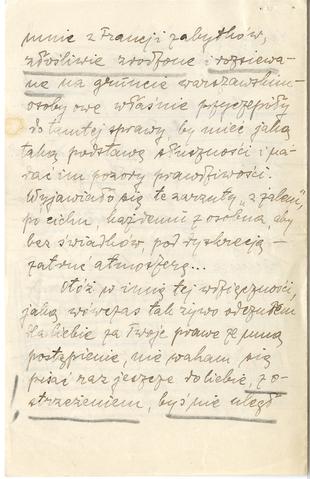 mnie z Francji zabytków,
złośliwie zrodzone i rozsiewa-
ne na gruncie warszawskim
osoby owe właśnie przyczepiły
do tamtej sprawy by mieć jaką
taką podstawę słuszności i na-
dać im pozory prawdziwości.
Wyjawiało się te zarzuty "z żalem",
po cichu, każdemu z osobna, aby
bez świadków, pod dyskrecją –
zatruć atmosferę...
Otóż w imię tej wdzięczności,
jaką wówczas tak żywo odczułem
dla Ciebie za Twoje prawe ze mną
postąpienie, nie waham się
pisać raz jeszcze do Ciebie, z o-
strzeżeniem, byś nie uległ